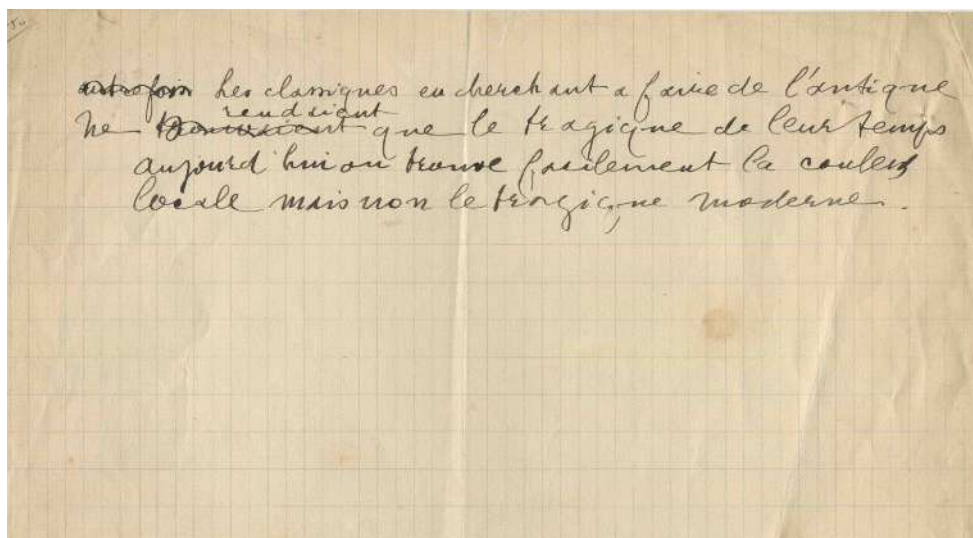 autrefois Les classiques en cherchant a faire de l'antique
rendaient
Ne trouvaient que le tragique de leur temps
aujourd'hui on trouve facilement la couleur
locale mais non le tragique moderne.